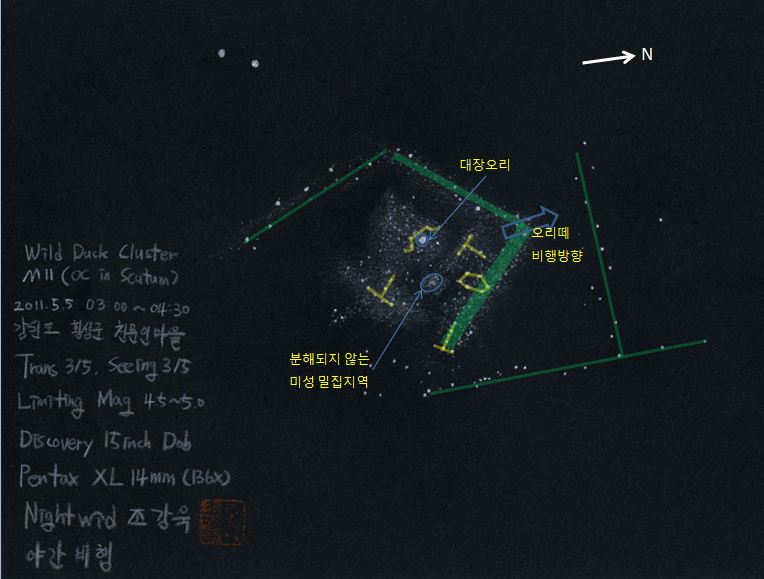 N
대장오리
오리떼
비행방향
분해되지 않는
미성 밀집지역
Wild Duck Cluster
M11 (OC in Scutum)
2011.5.5 03:00~04:30
강원도 횡성군 천문인마을
Trans 3/5, Seeing 3/5
Limiting Mag 4.5~5.0
Discovery 15inch Dob
Pentax XL 14mm (136x)
Nightwid 조강욱
야간비행